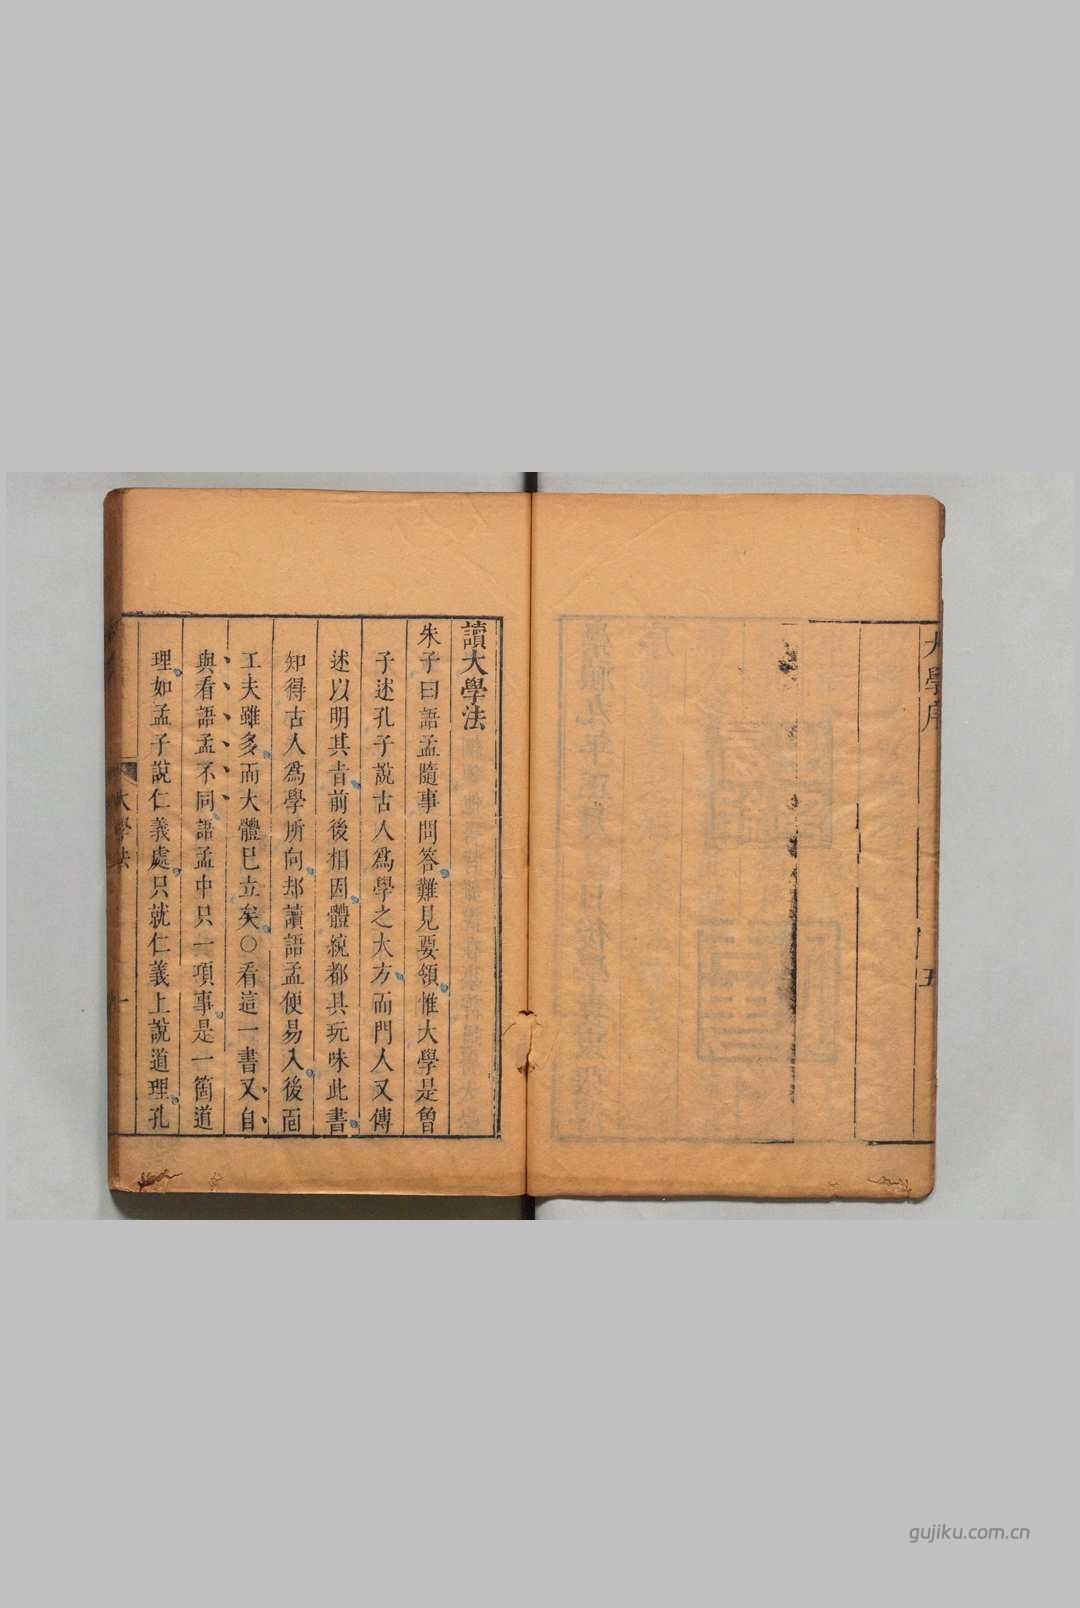 大學序
五
讀大學法
朱子曰語孟隨事問答難見要領惟大學是曾
子述孔子說古人爲學之大方而門人又傳
述以明其旨前後相因體統都具玩味此書
知得古人爲學所向却讀語孟便易入後面
工夫雖多而大體已立矣〇看這一書又自
與看語孟不同語孟中只一項事是一箇道
理如孟子說仁義處只就仁義上說道理孔
大學法
一
gujiku.com.cn